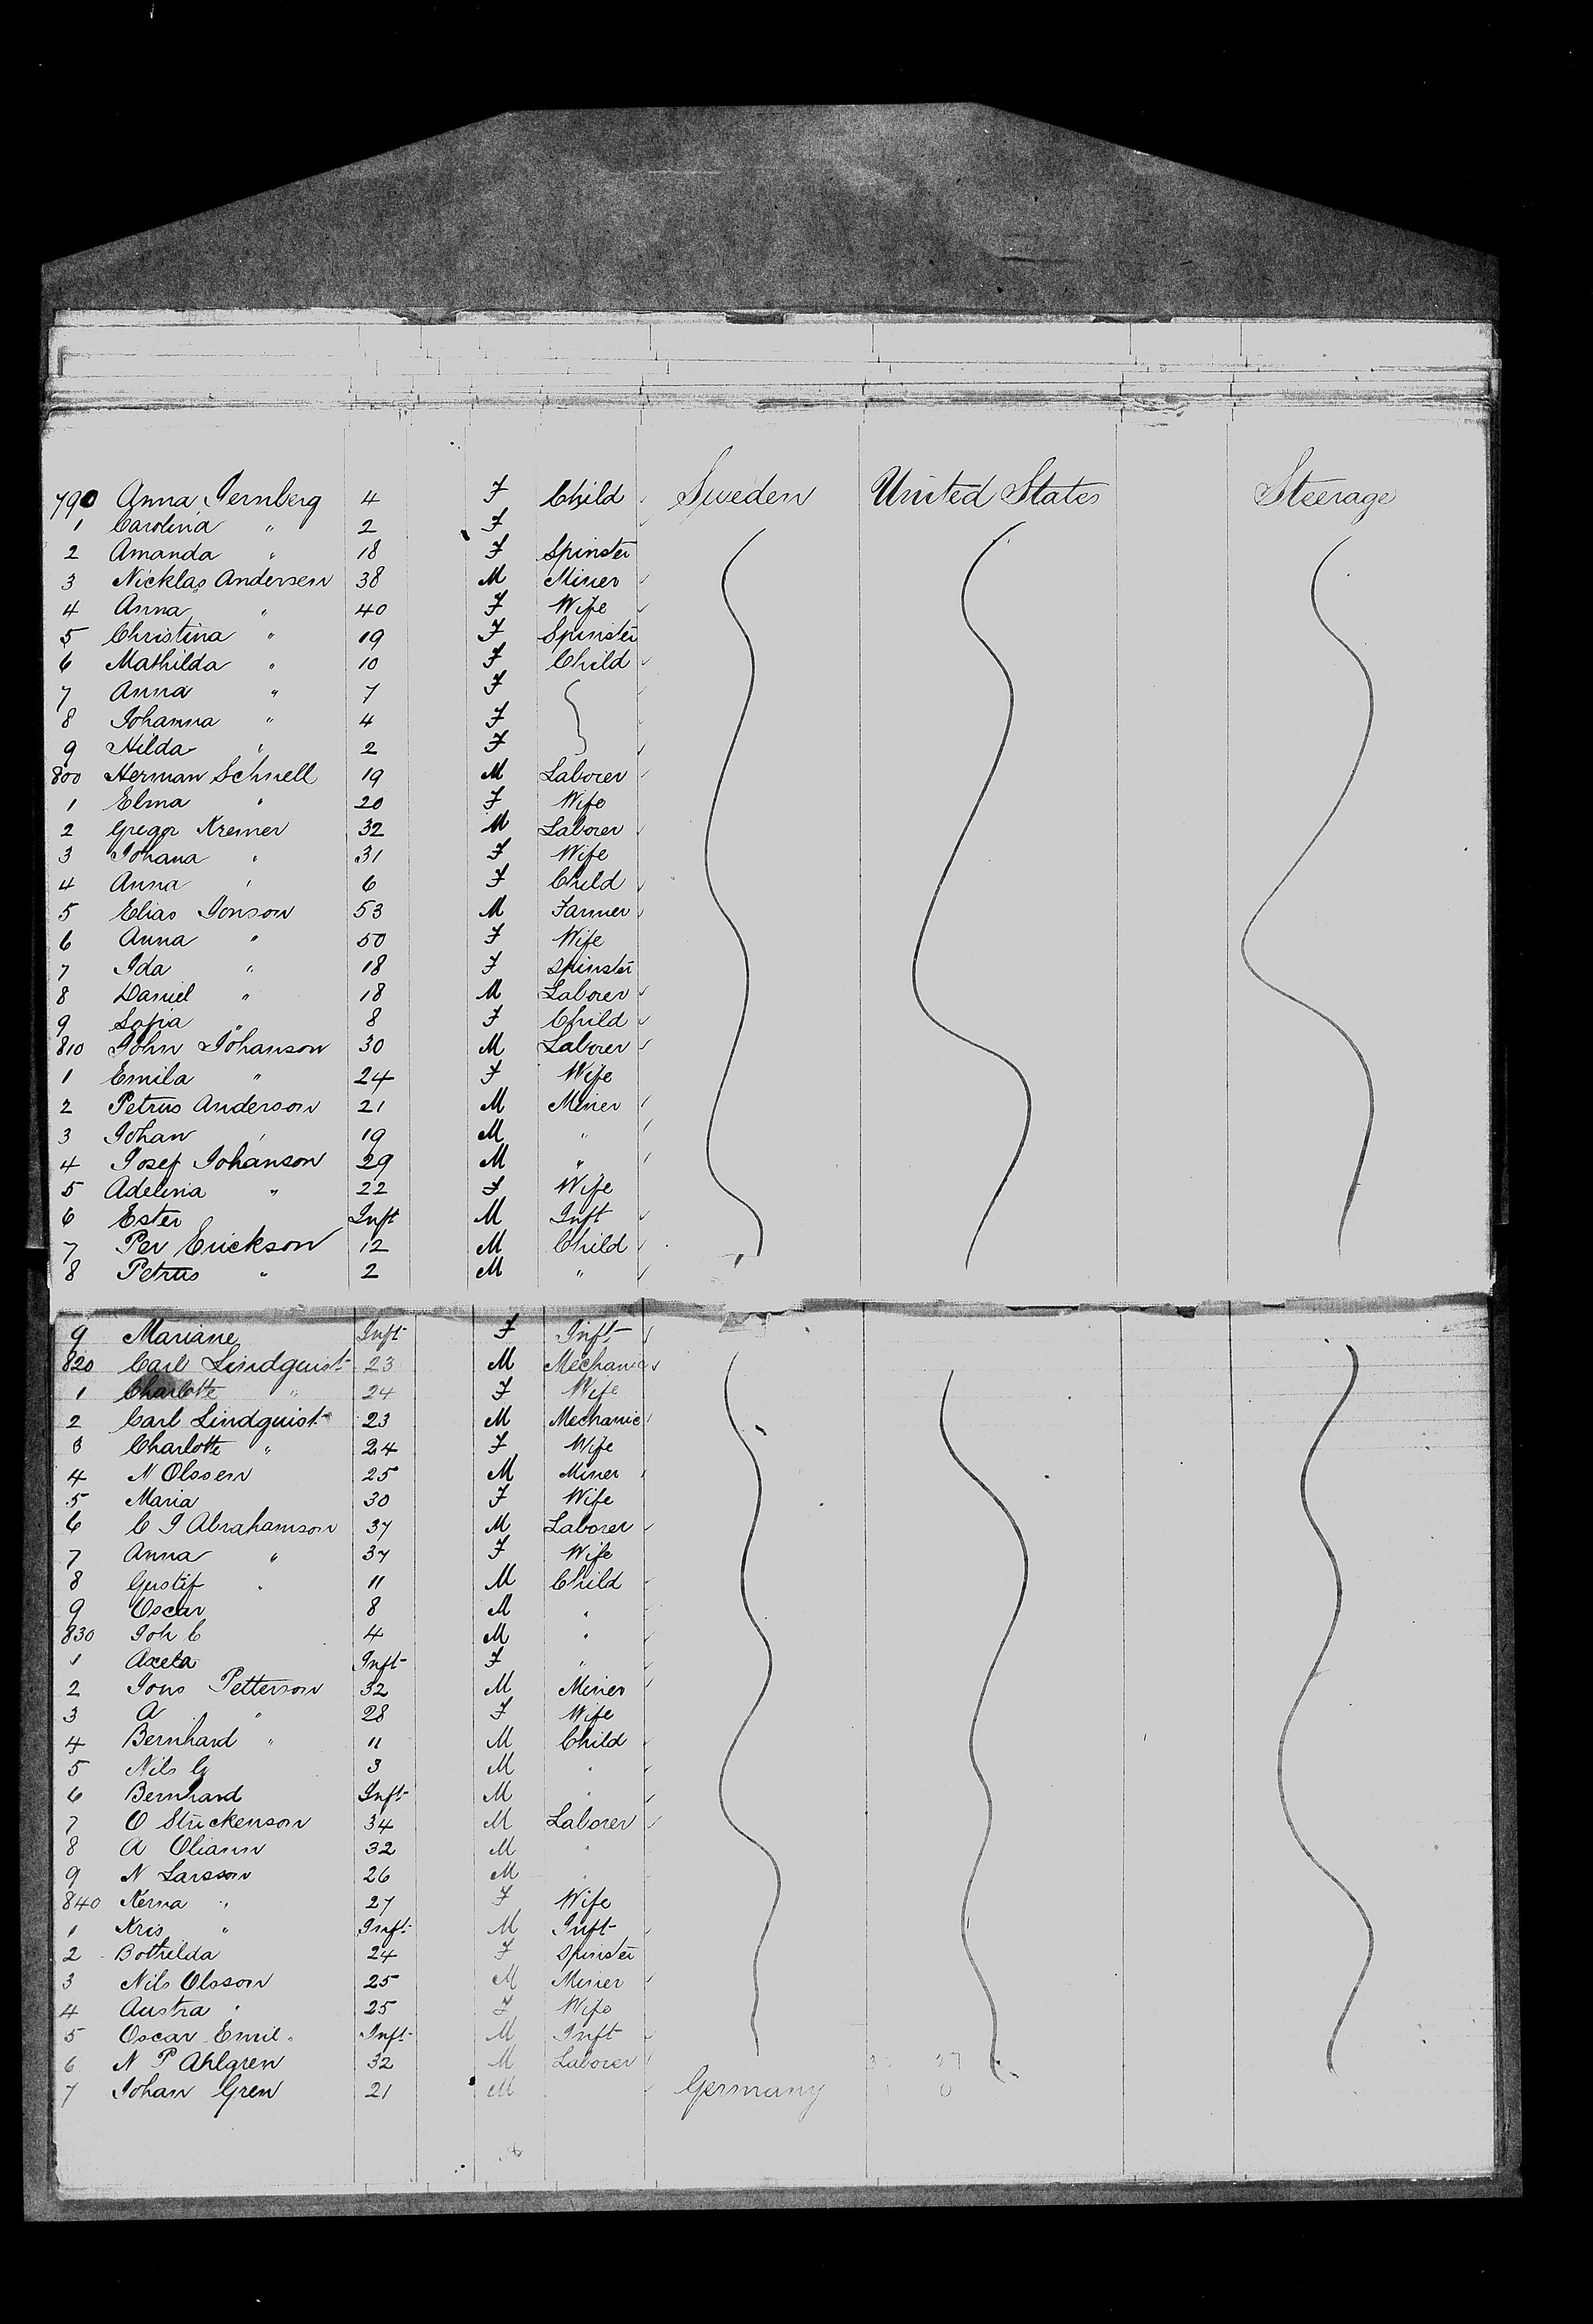 790 Anna Jernberg 4 F Child Sweden United States Steerage
1 Carolina " 2 F
2 Amanda " 18 F Spinster
3 Nicklas Andersen 38 M Miner
4 Anna " 40 F Wife
5 Christina " 19 F Spinster
6 Mathilda " 10 F Child
7 Anna " 7 F
8 Johanna " 4 F
9 Hilda " 2 F
800 Herman Schnell 19 M Laborer
1 Elma " 20 F Wife
2 Gregor Kremer 32 M Laborer
3 Johana " 31 F Wife
4 Anna " 6 F Child
5 Elias Jonson 53 M Farmer
6 Anna " 50 F Wife
7 Ida " 18 F Spinster
8 Daniel " 18 M Laborer
9 Sofia " 8 F Child
810 John Johanson 30 M Laborer
1 Emila " 24 F Wife
2 Petrus Anderson 21 M Miner
3 Johan " 19 M "
4 Josef Johanson 29 M "
5 Adelina " 22 F Wife
6 Ester Inft M Inft
7 Per Erickson 12 M Child
8 Petrus " 2 M "
9 Mariane Inft F Inft
820 Carl Lindquist 23 M Mechanic
1 Charlotte " 24 F Wife
2 Carl Lindquist 23 M Mechanic
3 Charlotte " 24 F Wife
4 N Olssen 25 M Miner
5 Maria 30 F Wife
6 C J Abrahamson 37 M Laborer
7 Anna " 37 F Wife
8 Gustif " 11 M Child
9 Oscar 8 M "
830 Joh C 4 M "
1 Axela Inft F "
2 Jons Petterson 32 M Miner
3 A " 28 F Wife
4 Bernhard " 11 M Child
5 Nils G 3 M "
6 Bernhard Inft M "
7 O Strickenson 34 M Laborer
8 A Oliann 32 M "
9 N Larsson 26 M "
840 Kerna " 27 F Wife
1 Kris " Inft M Inft
2 Bothilda 24 F Spinster
3 Nils Olsson 25 M Miner
4 Austra " 25 F Wife
5 Oscar Emil " Inft M Inft
6 N P Ahlgren 32 M Laborer
7 Johan Gren 21 M Germany